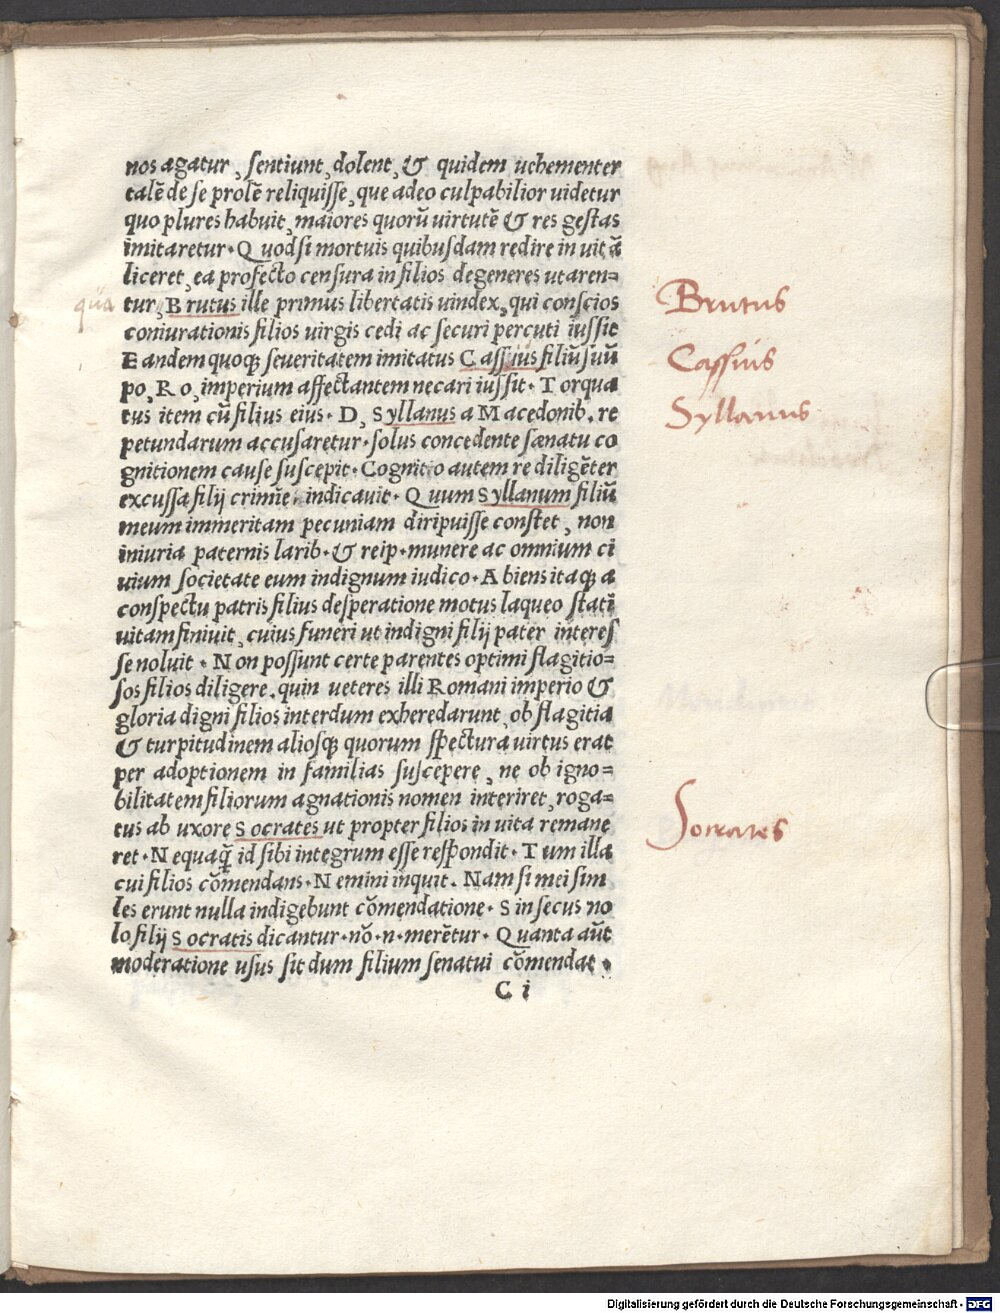 nos agatur, sentiunt, dolent, & quidem uehementer
talē de se prolē reliquisse, que adeo culpabilior uidetur
quo plures habuit, maiores quorū uirtutē & res gestas
imitaretur. Quodsi mortuis quibusdam redire in uitā
liceret, ea profecto censura in filios degeneres utaren=
qua tur, Brutus ille primus libertatis uindex, qui conscios
coniurationis filios uirgis cedi ac securi percuti iussit
Eandem quoqꝫ seueritatem imitatus Cassius filiū suū
po, Ro, imperium affectantem necari iussit. Torqua
tus item cū filius eius. D, Syllanus a Macedonib. re
petundarum accusaretur. solus concedente sænatu co
gnitionem cause suscepit. Cognito autem re diligēter
excussa filij crimīe indicauit. Quum Syllanum filiū
meum immeritam pecuniam diripuisse constet, non
iniuria paternis larib. & reip. munere ac omnium ci
uium societate eum indignum iudico. Abiens itaqꝫ a
conspectu patris filius desperatione motus laqueo statī
uitam finiuit, cuius funeri ut indigni filij pater interes
se noluit. Non possunt certe parentes optimi flagitio=
sos filios diligere. quin ueteres illi Romani imperio &
gloria digni filios interdum exheredarunt, ob flagitia
& turpitudinem aliosqꝫ quorum spectura uirtus erat
per adoptionem in familias suscepere, ne ob igno=
bilitatem filiorum agnationis nomen interiret, roga=
tus ab uxore Socrates ut propter filios in uita remane
ret. Nequaq̄ id sibi integrum esse respondit. Tum illa
cui filios cōmendans. Nemini inquit. Nam si mei sim
les erunt nulla indigebunt cōmendatione. Sin secus no
lo filij Socratis dicantur. nō. n. merētur. Quanta aūt
moderatione usus sit dum filium senatui cōmendat.
C i
Brutus
Cassius
Syllanus
Socrates
Digitalisierung gefördert durch die Deutsche Forschungsgemeinschaft - DFG